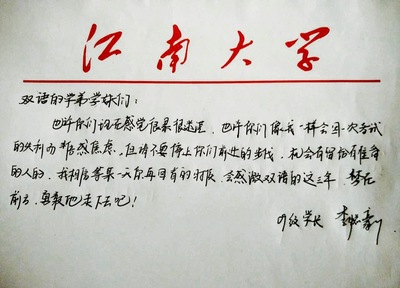 江南大学
双语的学弟学妹们：
也许你们现在感觉很累很迷茫，也许你们像我一样会因一次考试
的失利而倍感焦虑，但请不要停止你们前进的步伐，机会有留给有准备
的人的，我相信等某一天你再回首的时候，会感激双语的这三年，梦在
前方，勇敢地走下去吧！
09级学长